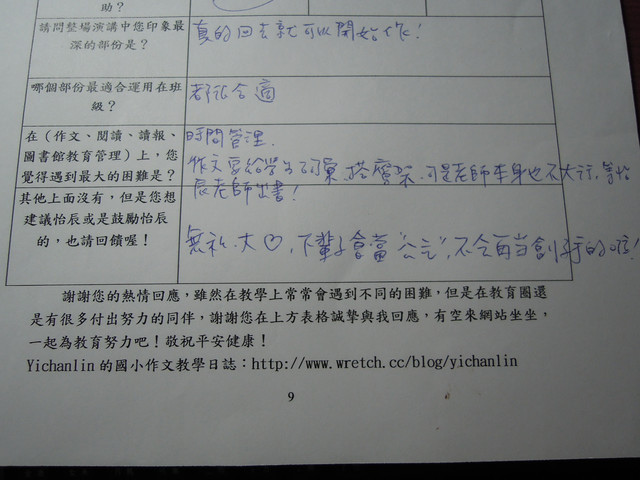 助？
請問整場演講中您印象最
深的部份是？
真的回去就可以開始作！
哪個部份最適合運用在班
級？
都很合適
在（作文、閱讀、讀報、
圖書館教育管理）上，您
覺得遇到最大的困難是？
時間管理.
作文要給學生 搭鷹架,可是老師本身也不大行,等怡
辰老師出書！
其他上面沒有，但是您想
建議怡辰或是鼓勵怡辰
的，也請回饋喔！
無私.大♡,下輩子會當"公主",不会再当創子手的咯!
謝謝您的熱情回應，雖然在教學上常常會遇到不同的困難，但是在教育圈還
是有很多付出努力的同伴，謝謝您在上方表格誠摯與我回應，有空來網站坐坐，
一起為教育努力吧！敬祝平安健康！
Yichanlin 的國小作文教學日誌：http://www.wretch.cc/blog/yichanlin
9